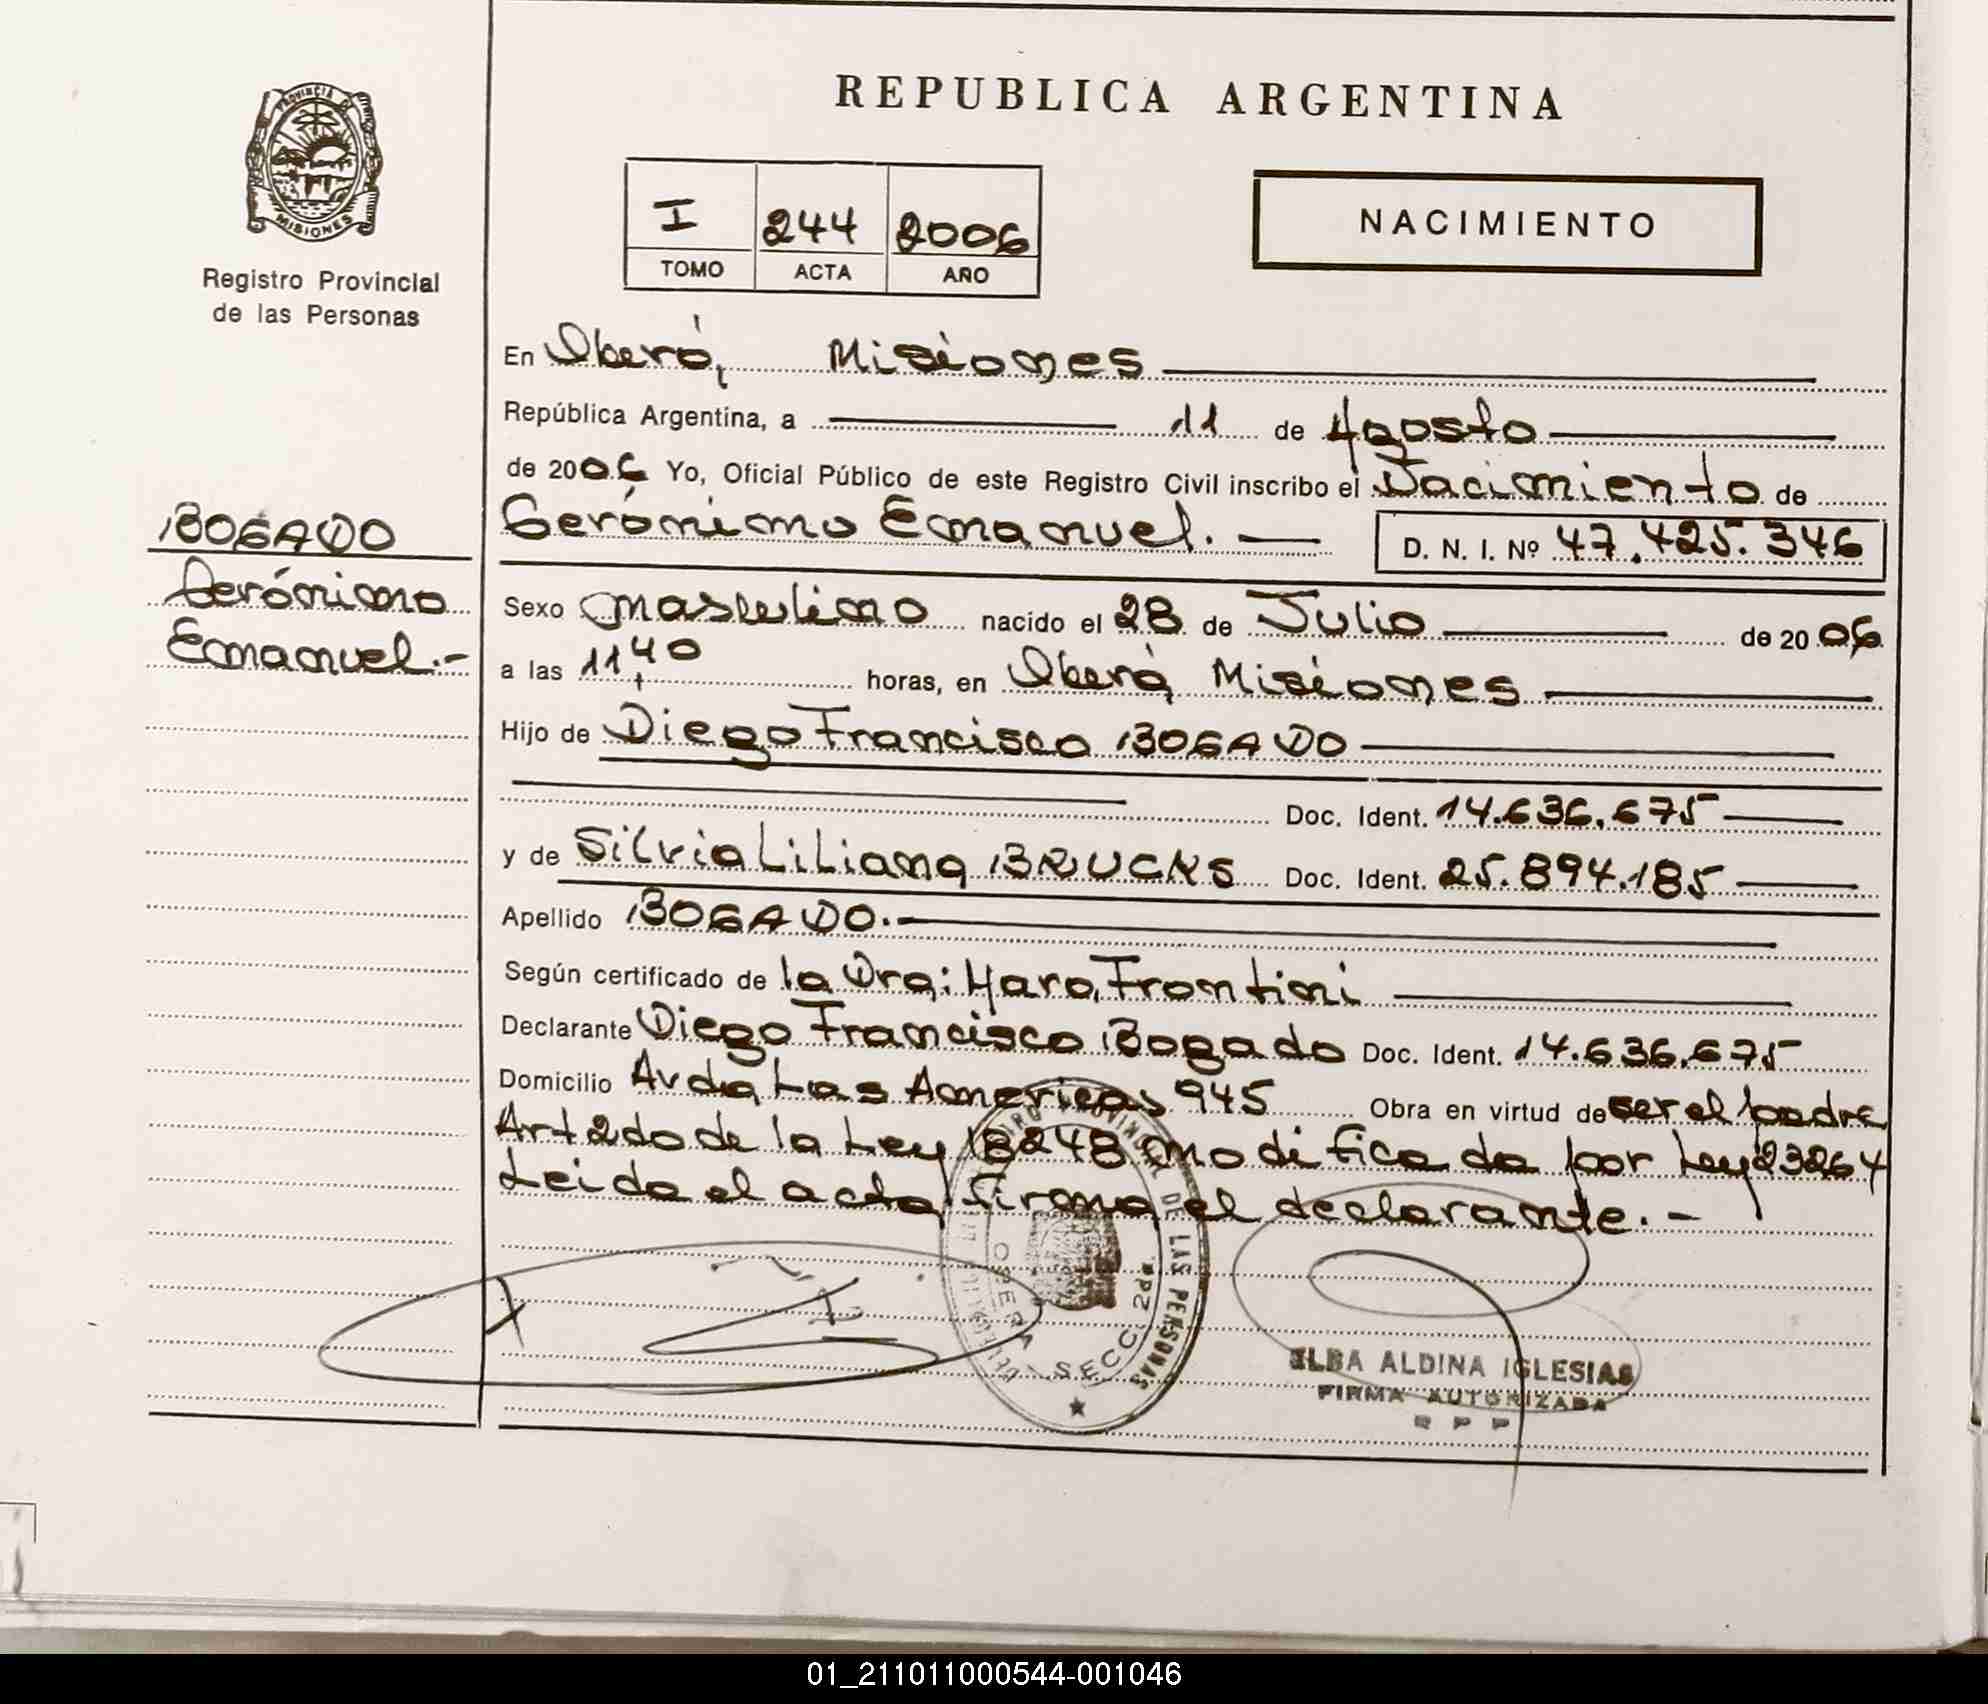 REPUBLICA ARGENTINA
PROVINCIA DE
MISIONES
Registro Provincial
de las Personas
I 244 2006
TOMO ACTA AÑO
NACIMIENTO
En Oberá, Misiones
República Argentina, a 11 de Agosto
de 2006 Yo, Oficial Público de este Registro Civil inscribo el Nacimiento de
Gerónimo Emanuel. D. N. I. Nº 47.425.346
BOGADO
Gerónimo
Emanuel.-
Sexo masculino nacido el 28 de Julio de 2006
a las 11,40 horas, en Oberá, Misiones
Hijo de Diego Francisco BOGADO
Doc. Ident. 14.636.675
y de Silvia Liliana BRUCKS Doc. Ident. 25.894.185
Apellido BOGADO.
Según certificado de la Dra: Frontini
Declarante Diego Francisco Bogado Doc. Ident. 14.636.675
Domicilio Avda Las Americas 945 Obra en virtud de ser el padre
Art 2do de la Ley 18248 modificada por Ley 23264
Leida el acta firma el declarante.-
DE LAS PERSONAS
OBERA
SECC. 2da
ELBA ALDINA IGLESIAS
FIRMA AUTORIZADA
R P P
01_211011000544-001046